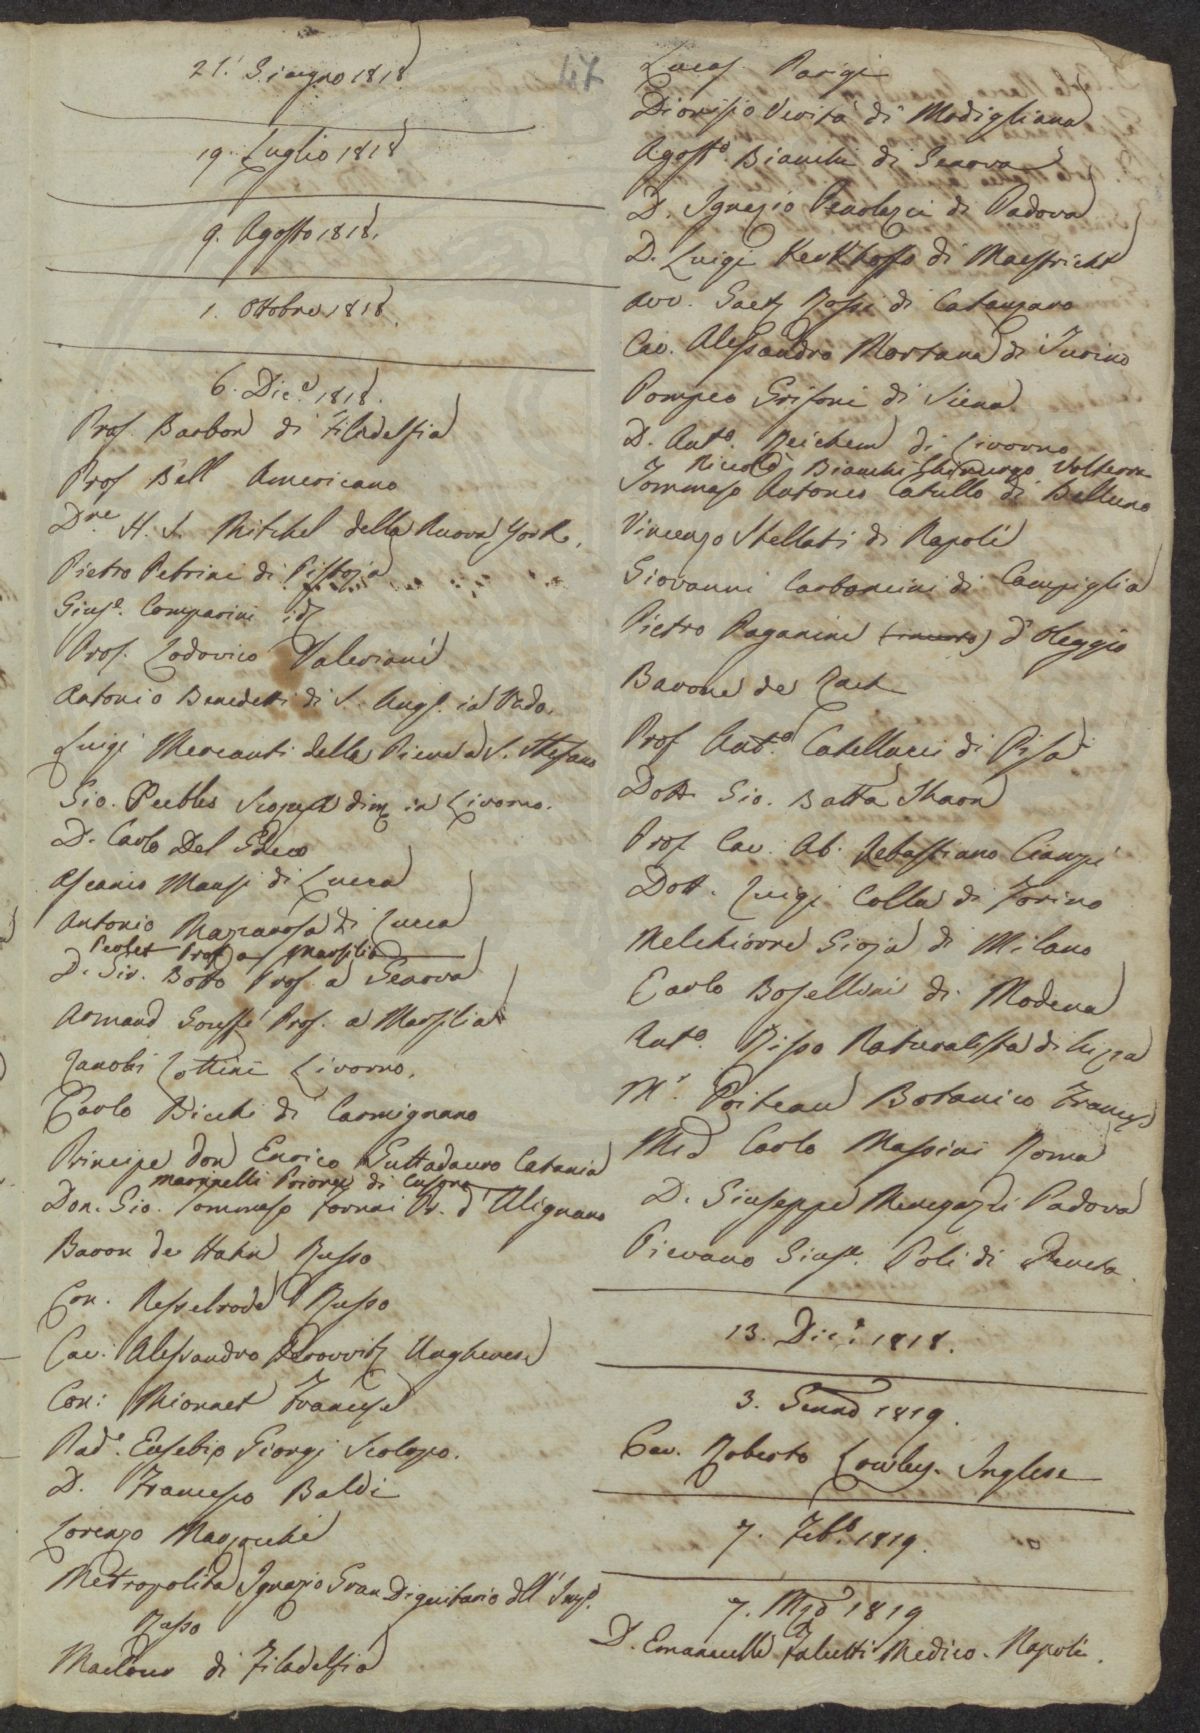 47
21. Giugno 1818
19. Luglio 1818
9. Agosto 1818.
1. Ottobre 1818.
6. Dic.e 1818.
Prof. Barbon di Filadelfia
Prof Bell Americano
D.re H. S. Mitchel della Nuova York.
Pietro Petrini di Pistoja
Gius.e Comparini id
Prof. Lodovico Valeriani
Antonio Benedetti di S. Ang.o in Vado.
Luigi Mercanti della Pieve a S. Stefano
Gio. Peebles in Livorno.
D. Carlo Del Greco
Ascanio Mansi di Lucca
Antonio Mazzarosa di Lucca
Prof a Marsilia
D. Gir. Botto Prof a Genova
Armand Gouffé Prof. a Marsilia
Zanobi Lottini Livorno.
Carlo Bicchi di Carmignano
Principe Don Enrico Guttadauro Catania
Marinelli Priore di Cusona
Don. Gio. Tommaso Fornai Pr. d'Alignano
Baron de Hahn Russo
Con. Nesselrode Russo
Cav. Alessandro Ungherese
Con: Mionnet Francese
Pad.e Eusebio Giorgi Scolopo.
D. Francesco Baldi
Lorenzo
Metropolita Ignazio Gran Dignitario dell' Imp.o
Russo
Maclure di Filadelfia
Lucas. Parigi
Dionisio Verità di Modigliana
Agost.o Bianchi di Genova
D. Ignazio Penolazzi di Padova
D. Luigi Kerkhoffs di Maestricht
Avv. Gaet. Rossi di Catanzaro
Cav. Alessandro Mortana di Turino
Pompeo Grifoni di Siena
D. Ant.o di Livorno
Bianchi Chirurgo Volterra
Tommaso Antonio Catullo di Belluno
Vincenzo Stellati di Napoli
Giovanni Carboncini di Campiglia
Pietro Paganini d'Oleggio
Barone de Zach
Prof Ant.o Catellacci di Pisa
Dott. Gio. Batta Thaon
Prof Cav. Ab. Sebastiano Ciampi
Dott. Luigi Colla di Torino
Melchiorre Gioja di Milano
Carlo Bosellini di Modena
Ant.o Risso Naturalista di Nizza
M.r Poiteau Botanico Francese
Med Carlo Massini Roma
D. Giuseppe Menegazzi Padova
Pievano Gius.e Poli di
13. Dic.e 1818.
3. Genn.o 1819.
Cav. Roberto Lowley. Inglese
7. Feb.o 1819.
7. Mzo 1819
D. Emanuelle Falutti Medico. Napoli.